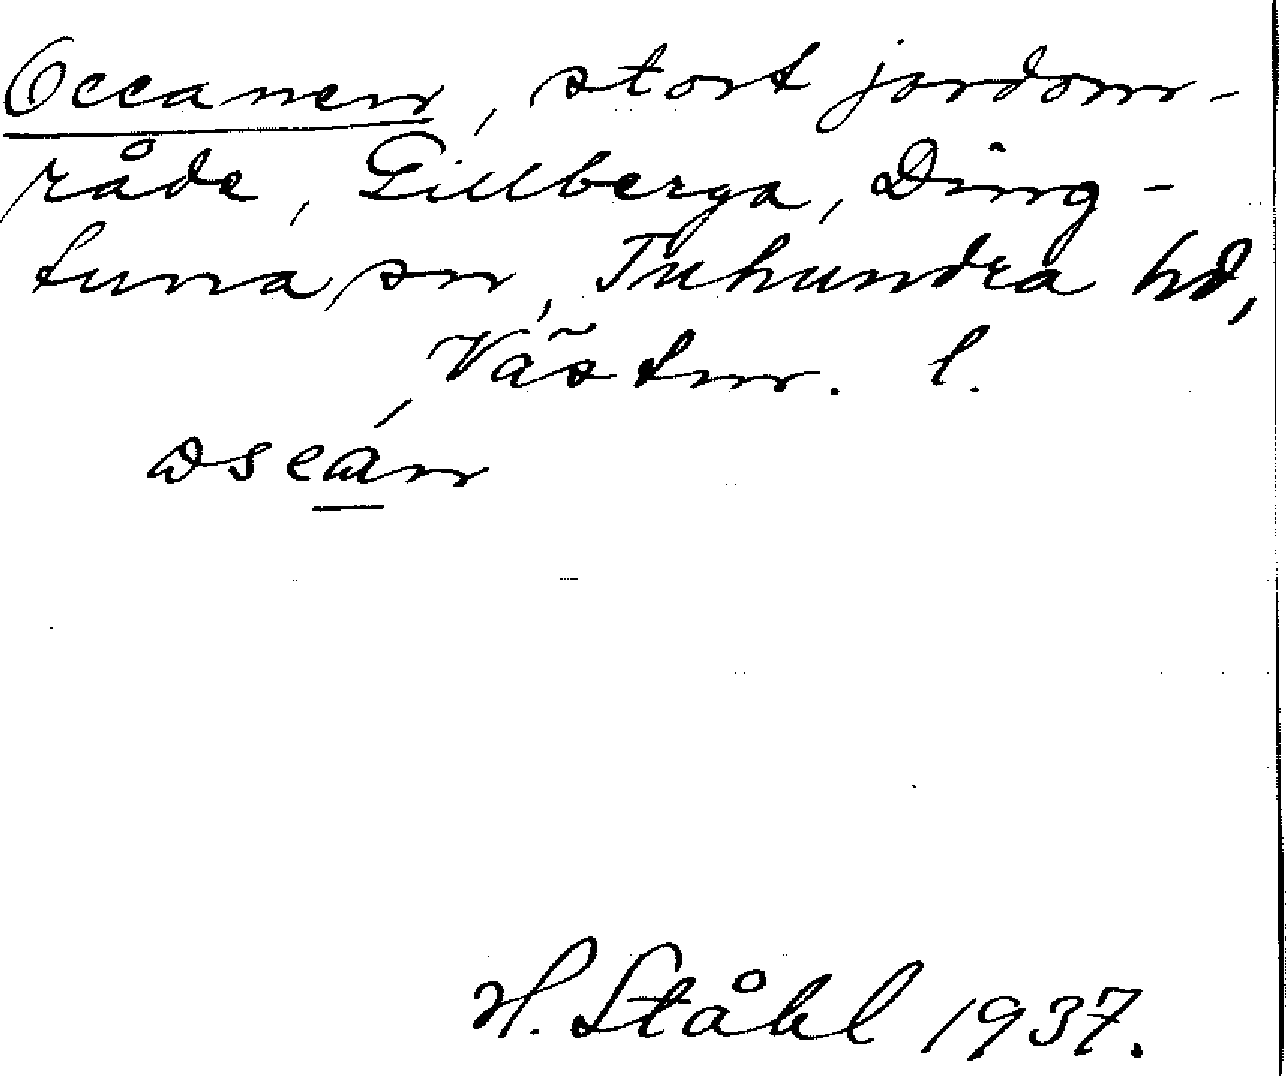 Oceanen, stort jordom-
råde, Lillberga, Ding-
tuna sn, Tuhundra hd,
Västm. l.
oseán
H. Ståhl 1937.